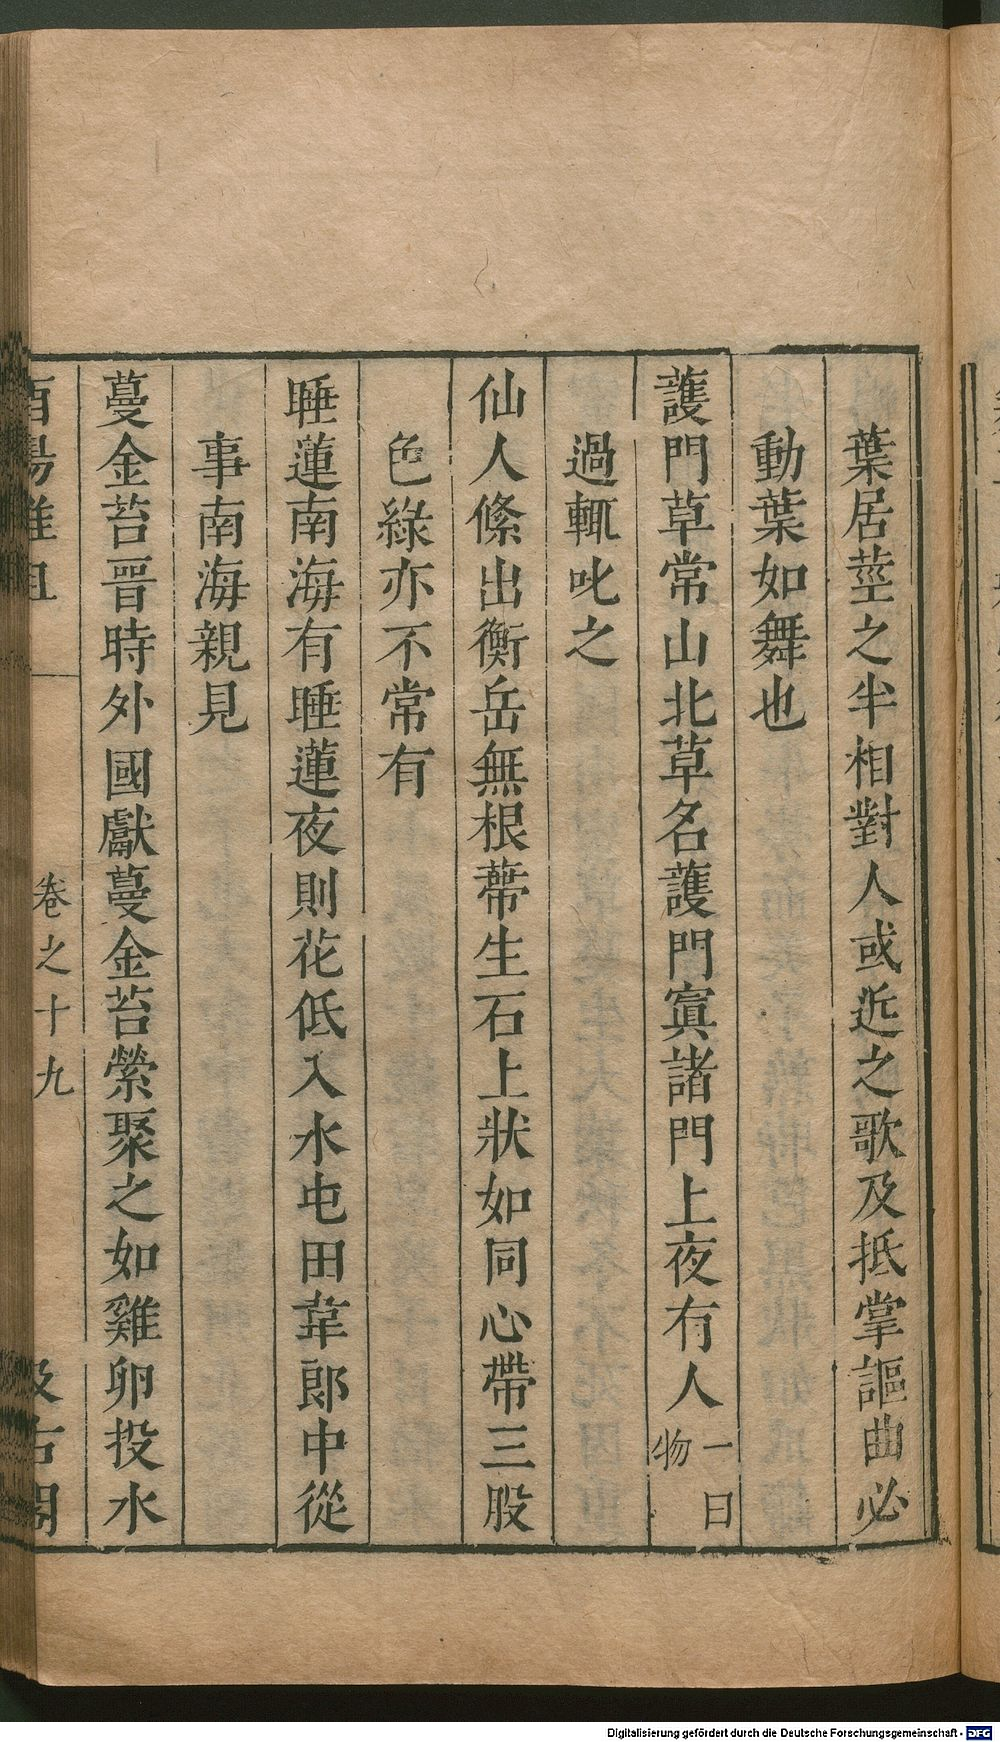 葉居莖之半相對人或近之歌及抵掌謳曲必
動葉如舞也
護門草常山北草名護門寘諸門上夜有人一曰物
過輒叱之
仙人絛出衡岳無根蔕生石上狀如同心帶三股
色綠亦不常有
睡蓮南海有睡蓮夜則花低入水屯田韋郎中從
事南海親見
蔓金苔晉時外國獻蔓金苔縈聚之如雞卵投水
酉陽雜俎 卷之十九 汲古閣
Digitalisierung gefördert durch die Deutsche Forschungsgemeinschaft - DFG